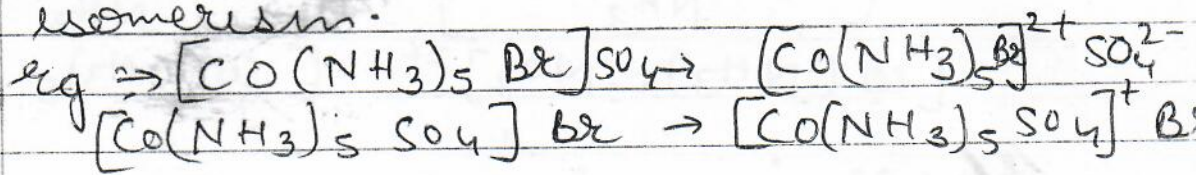 isomerism.
eg ⇒ [CO(NH₃)₅ Br]SO₄→ [Co(NH₃)₅Br]²⁺ SO₄²⁻
[Co(NH₃)₅ SO₄] Br → [CO(NH₃)₅ SO₄]⁺ B